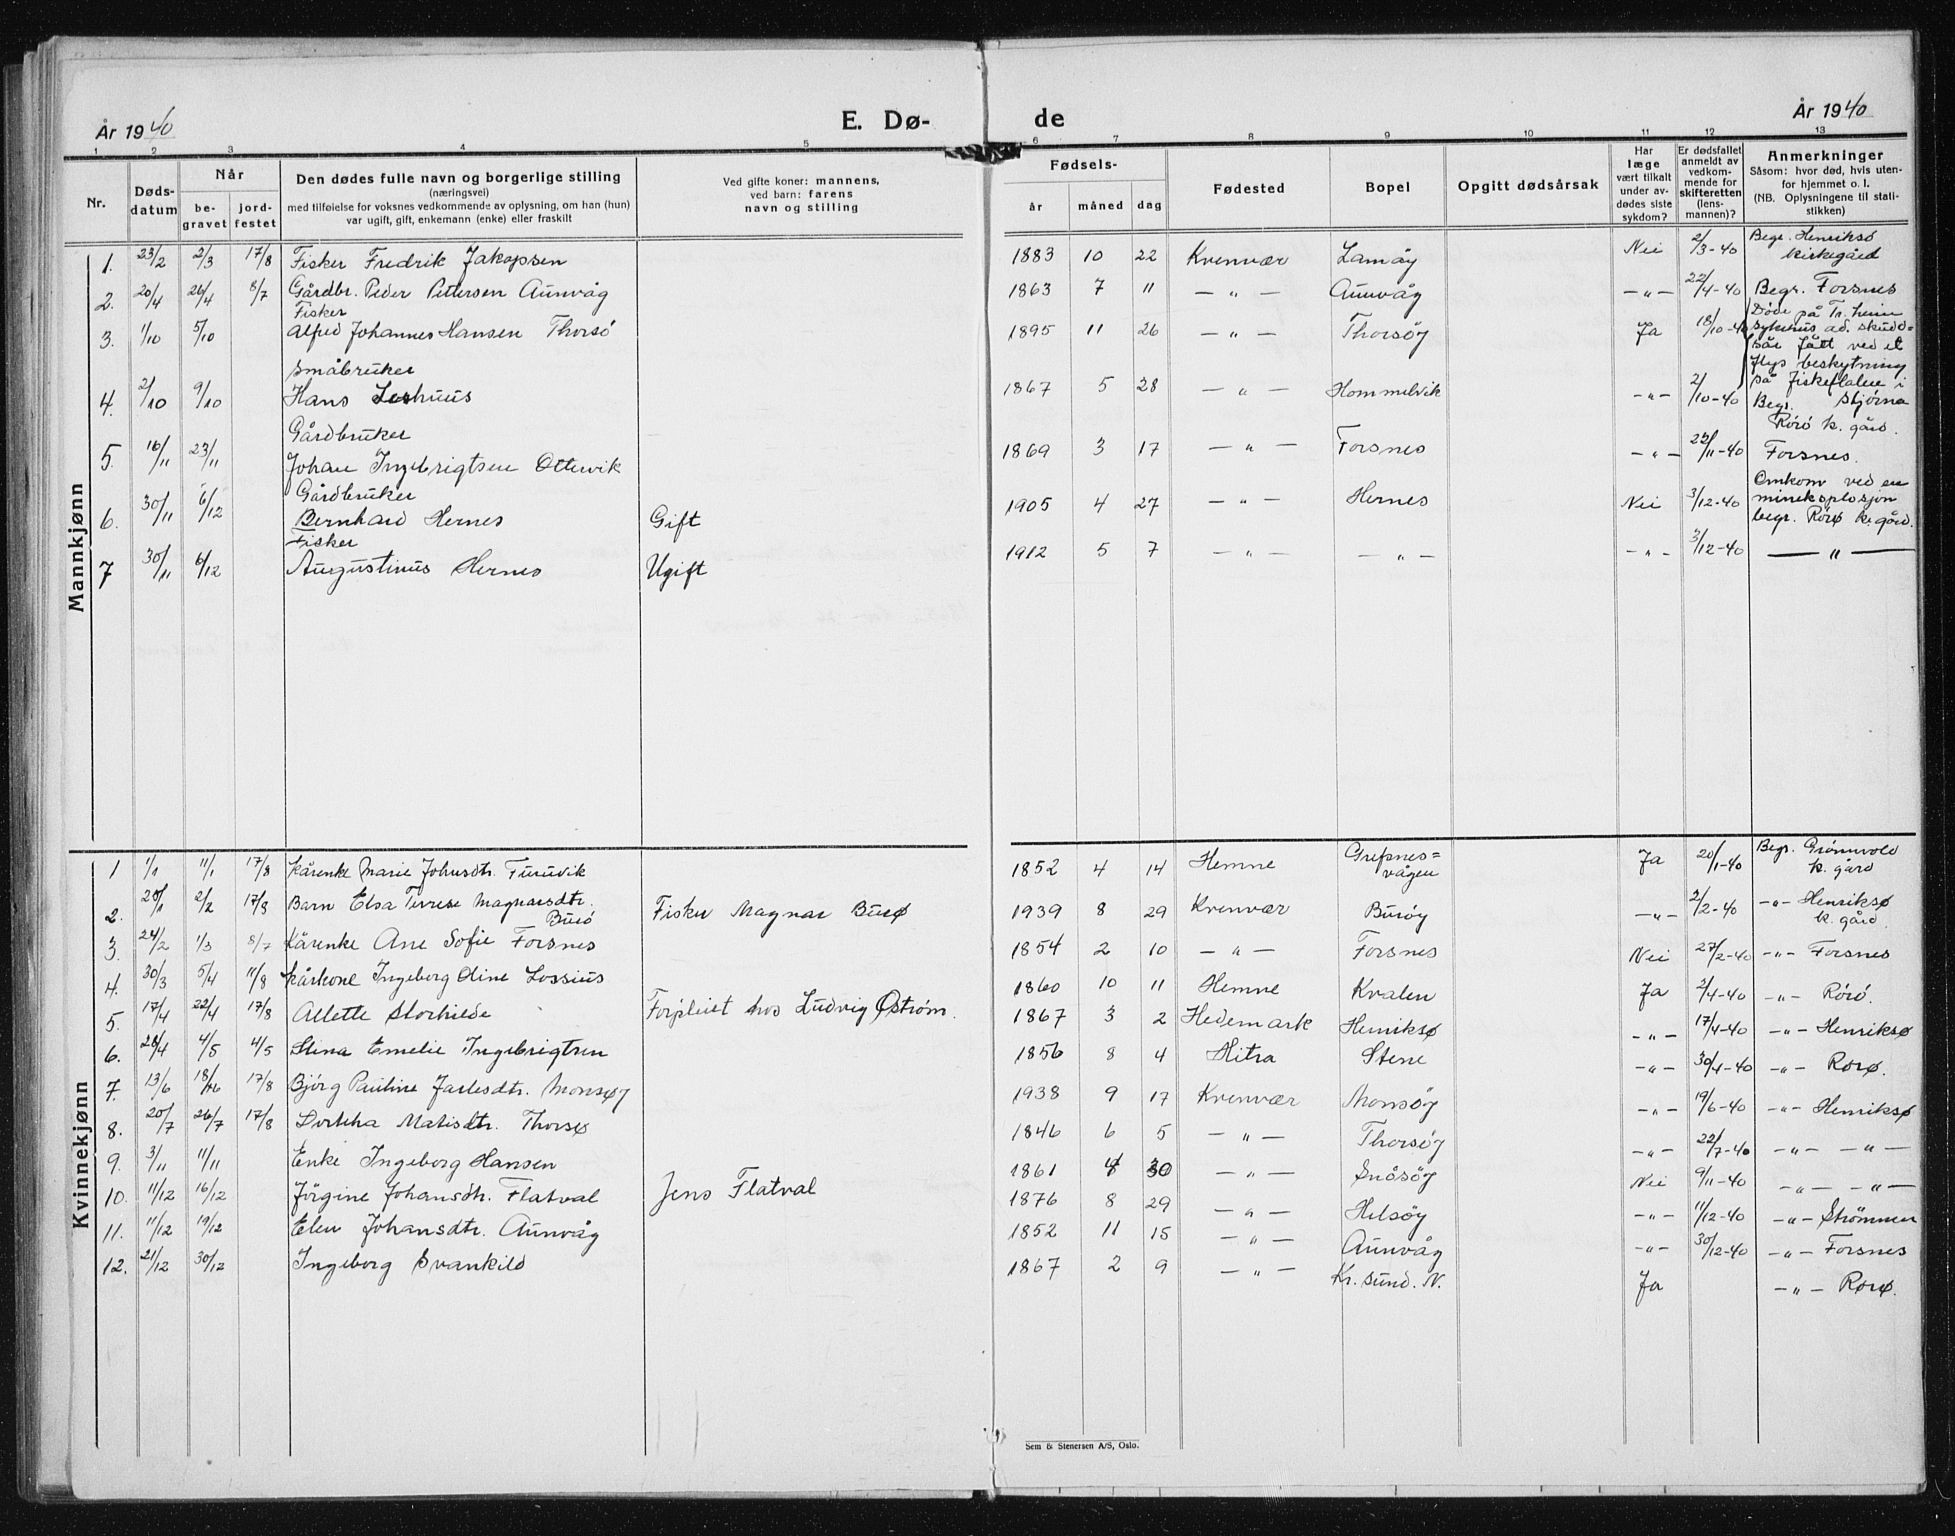 År 1940 E. Dø- de År 1940
1 2 3 4 5 6 7 8 9 10 11 12 13
Nr. Døds-datum Når be-gravet jord-festet
Den dødes fulle navn og borgerlige stilling
(næringsvei)
med tilføielse for voksnes vedkommende av oplysning, om han (hun)
var ugift, gift, enkemann (enke) eller fraskilt
Ved gifte koner: mannens,
ved barn: farens
navn og stilling
Fødsels- år måned dag
Fødested
Bopel
Opgitt dødsårsak
Har læge vært tilkalt under av-dødes siste sykdom?
Er dødsfallet anmeldt av vedkom-mende for skifteretten (lens-mannen)?
Anmerkninger
Såsom: hvor død, hvis uten-for hjemmet o. l.
(NB. Oplysningene til stati-stikken)
Mannkjønn
1. 23/2 2/3 17/8 Fisker Fredrik Jakopsen 1883 10 22 Kvenvær Lamøy Nei 2/3-40 Begr. Henriksø kirkegård
2. 20/4 26/4 8/7 Gårdbr. Peder Pettersen Aunvåg 1863 7 11 — „ — Aunvåg — „ — 22/4-40 Begr. Forsnes
3. 1/10 5/10 Fisker Alfred Johannes Hansen Thorsø 1895 11 26 — „ — Thorsøy Ja 18/10-40 Døde på Tr.heim sykehus av skudd= sår fått ved et flys beskytning på fiskeflaten i Stjørna
4. 2/10 9/10 Småbruker Hans 1867 5 28 — „ — Hommelvik — „ — 2/10-40 Begr. Rörö k. gård.
5. 16/11 23/11 Gårdbruker Johan Ingebrigtsen Ottervik 1869 3 17 — „ — Forsnes — „ — 22/11-40 Forsnes.
6. 30/11 6/12 Gårdbruker Bernhard Hernes Gift 1905 4 27 — „ — Hernes Nei 3/12-40 Omkom ved en mineksplosjon begr. Rörø k. gård.
7 30/11 6/12 Fisker Augustinus Hernes Ugift 1912 5 7 — „ — — „ — — „ — 3/12-40 — „ —
Kvinnekjønn
1 1/1 11/1 17/8 Kårenke Marie Johnsdtr. Furuvik 1852 4 14 Hemne Grefsnes= vågen Ja 20/1-40 Begr. Grømvold k. gård
2. 28/1 2/2 17/8 Barn Elsa Terese Magnarsdtr. Burö Fisker Magnar Burø 1939 8 29 Kvenvær Burøy — „ — 2/2-40 — „ — Henriksø k. gård.
3. 24/2 1/3 8/7 Kårenke Ane Sofie Forsnes 1854 2 10 — „ — Forsnes Nei 27/2-40 — „ — Forsnes
4. 30/3 5/4 11/8 Kårkone Ingeborg Oline Lossius 1860 10 11 Hemne Kvalen Ja 2/4-40 — „ — Rörö.
5. 17/4 22/4 17/8 Allette Storhilde Forpleiet hos Ludvig Østrøm. 1867 3 2 Hedemark Henriksø — „ — 17/4-40 — „ — Henriksø
6. 28/4 4/5 4/5 Stina Emelie Ingebrigtsen 1856 8 4 Hitra Stene — „ — 30/4-40 — „ — Rørø.
7. 13/6 18/6 17/8 Bjørg Pauline Jarlesdtr. Monsøy 1938 9 17 Kvenvær Monsøy — „ — 19/6-40 — „ — Henriksø
8. 20/7 26/7 17/8 Dortha Matisdtr. Thorsø 1846 6 5 — „ — Thorsøy — „ — 22/7-40 — „ — — „ —
9. 3/11 11/11 Enke Ingeborg Hansen 1861 30 — „ — Snåsøy Nei 9/11-40 — „ — — „ —
10. 11/12 16/12 Jörgine Johansdtr. Flatval Jens Flatval 1876 8 29 — „ — Helsøy — „ — 11/12-40 — „ — Strømmen
11. 11/12 19/12 Elen Johansdtr. Aunvåg 1852 11 15 — „ — Aunvåg — „ — 30/12-40 — „ — Forsnes
12. 21/12 30/12 Ingeborg Svankild 1867 2 9 — „ — Kr. sund. N. Ja — „ — Rørø.
Sem & Stenersen A/S, Oslo.